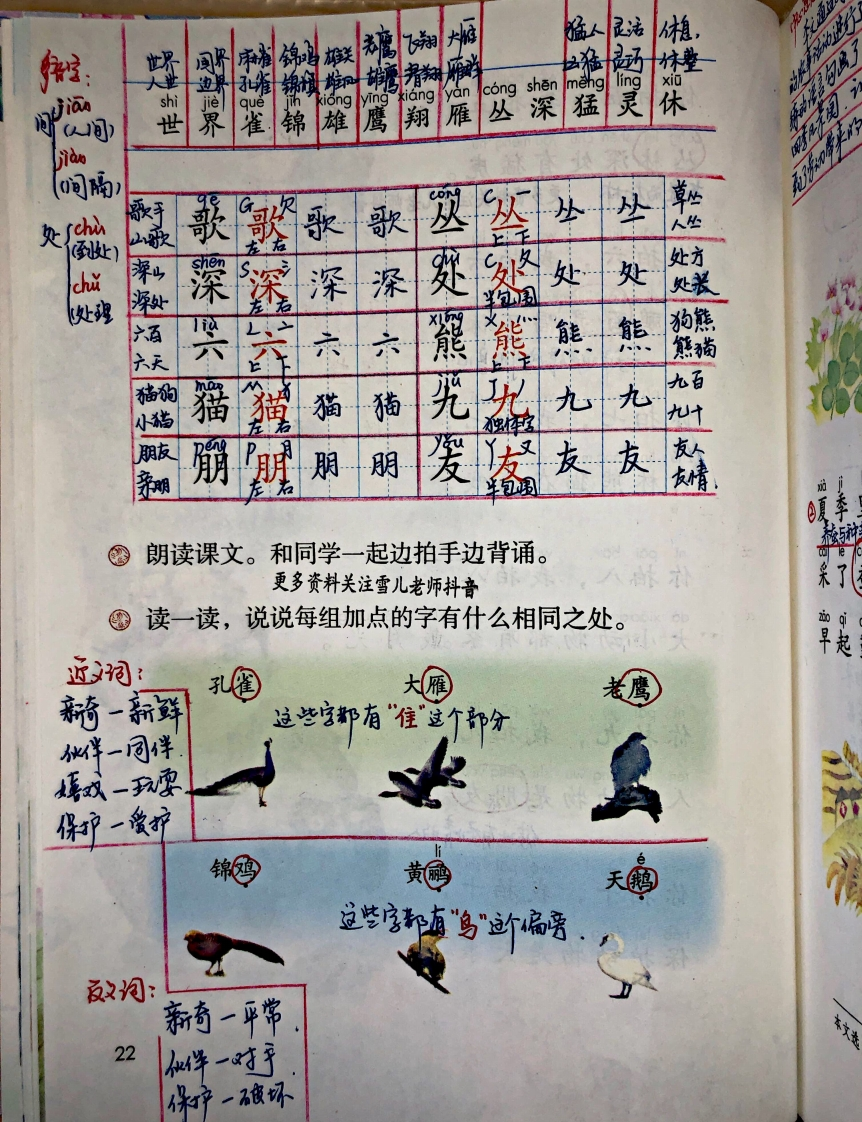 多音字：
间 jiān（人间）
jiàn（间隔）
处 chù（到处）
chǔ（处理
世界 国界 麻雀 锦鸡 雄关 老鹰 飞翔 大雁 猛人 灵活 休息，
人世 边界 孔雀 雄鹰 休整
shì jiè què jǐn xióng yīng xiáng yàn cóng shēn měng líng xiū
世 界 雀 锦 雄 鹰 翔 雁 丛 深 猛 灵 休
歌手 gē 歌 G 欠 歌 歌 歌 cóng 丛 C 一 丛 丛 丛 草丛
山歌 左右 上下 人丛
深山 shēn 深 S 氵 深 深 深 chǔ 处 C 夂 处 处 处 处方
深处 左右 半包围
六百 liù 六 L 亠 六 六 六 xióng 熊 X 灬 熊 熊 熊 狗熊
六天 上下 上下 熊猫
猫狗 māo 猫 M 犭 猫 猫 猫 jiǔ 九 J 丿 九 九 九 九百
小猫 左右 独体字 九十
朋友 péng 朋 P 月 朋 朋 朋 yǒu 友 Y 又 友 友 友 友人
亲朋 左右 半包围 友情.
朗读课文。和同学一起边拍手边背诵。
更多资料关注雪儿老师抖音
读一读，说说每组加点的字有什么相同之处。
近义词：
新奇—新鲜
伙伴—同伴
嬉戏—玩耍
保护—爱护
孔雀 大雁 老鹰
这些字都有“隹”这个部分
lí é
锦鸡 黄鹂 天鹅
这些字都有“鸟”这个偏旁.
反义词：
新奇—平常.
伙伴—对手
保护—破坏
22
xià jì
夏 季
采 了
zǎo qǐ
早 起
本文选